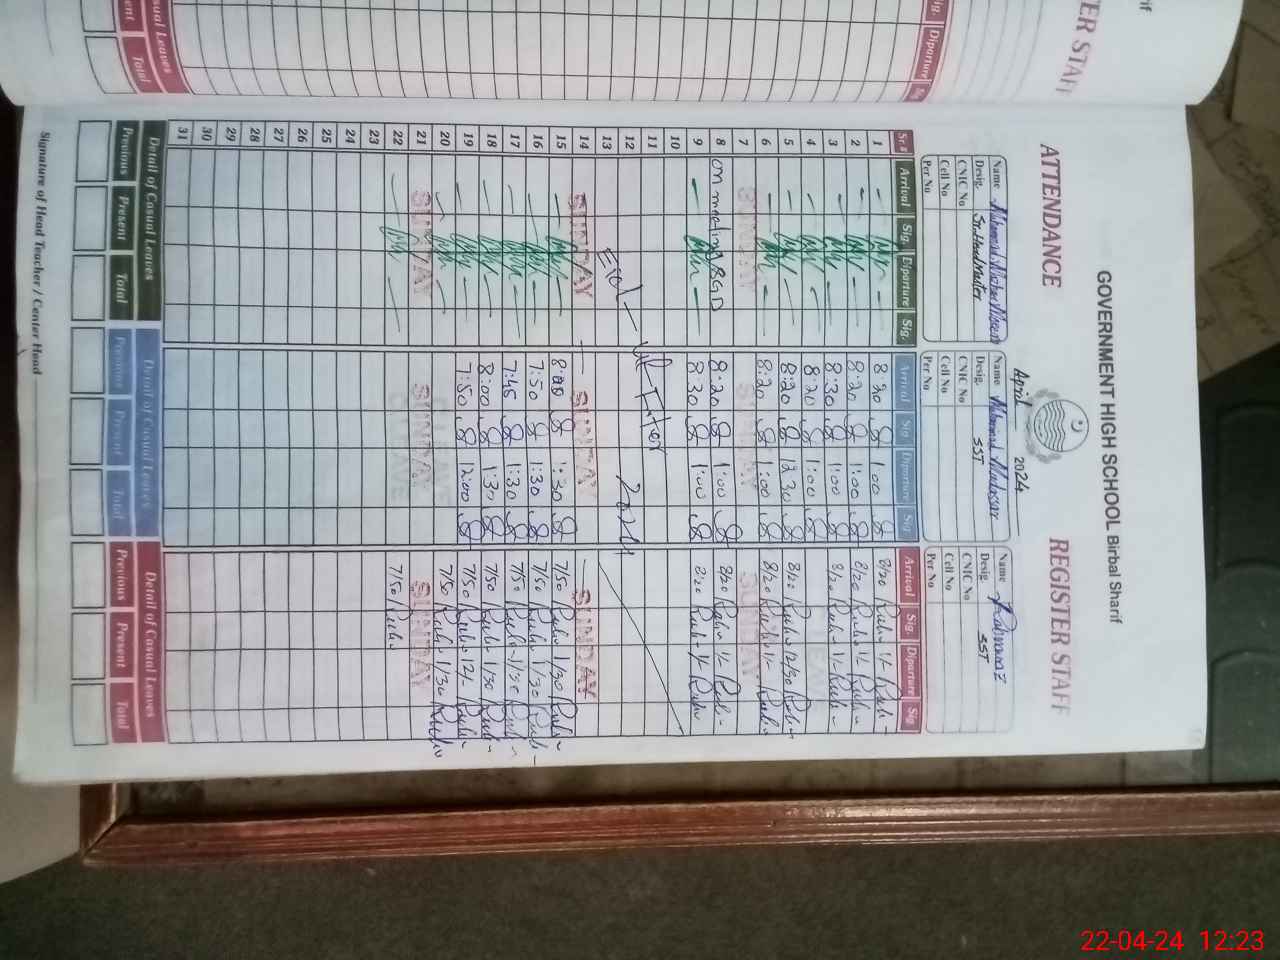 GOVERNMENT HIGH SCHOOL Birbal Sharif
ATTENDANCE REGISTER STAFF
April 2024
Name
Desig. Sr. Head Master
CNIC No
Cell No
Per No
Name
Desig. SST
CNIC No
Cell No
Per No
Name
Desig. SST
CNIC No
Cell No
Per No
Sr.# Arrival Sig. Diparture Sig. Arrival Sig. Diparture Sig. Arrival Sig. Diparture Sig.
1 8:20 1:00 8/20 1/-
2 8:20 1:00 8/20 1/-
3 8:20 1:00 8/20 1/-
4 8:20 1:00
5 8:20 12:30 8/20 12/30
6 8:20 1:00 8/20 1/-
7 SUNDAY SUNDAY SUNDAY
8 on meeting BGD 8:20 1:00 8/20 1/-
9 8:30 1:00 8/20 1/-
10
11
12
13
Eid-ul-Fiter 2024
14 SUNDAY SUNDAY SUNDAY
15 8:00 1:30 7/50 1/30
16 7:50 1:30 7/50 1/30
17 7:45 1:30 7/50 1/30
18 8:00 1:30 7/50 1/30
19 7:50 12:00 7/50 12/-
20 7/50 1/30
21 SUNDAY SUNDAY SUNDAY
22 7/50
23
24
25
26
27
28
29
30
31
Detail of Casual Leaves Detail of Casual Leaves Detail of Casual Leaves
Previous Present Total Previous Present Total Previous Present Total
Signature of Head Teacher / Center Head
ER STAFF
Diparture
Casual Leaves
Total
22-04-24 12:23